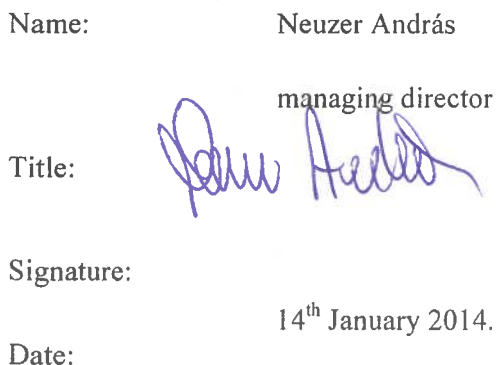 Name: Neuzer András
managing director
Title:
Signature:
14th January 2014.
Date: